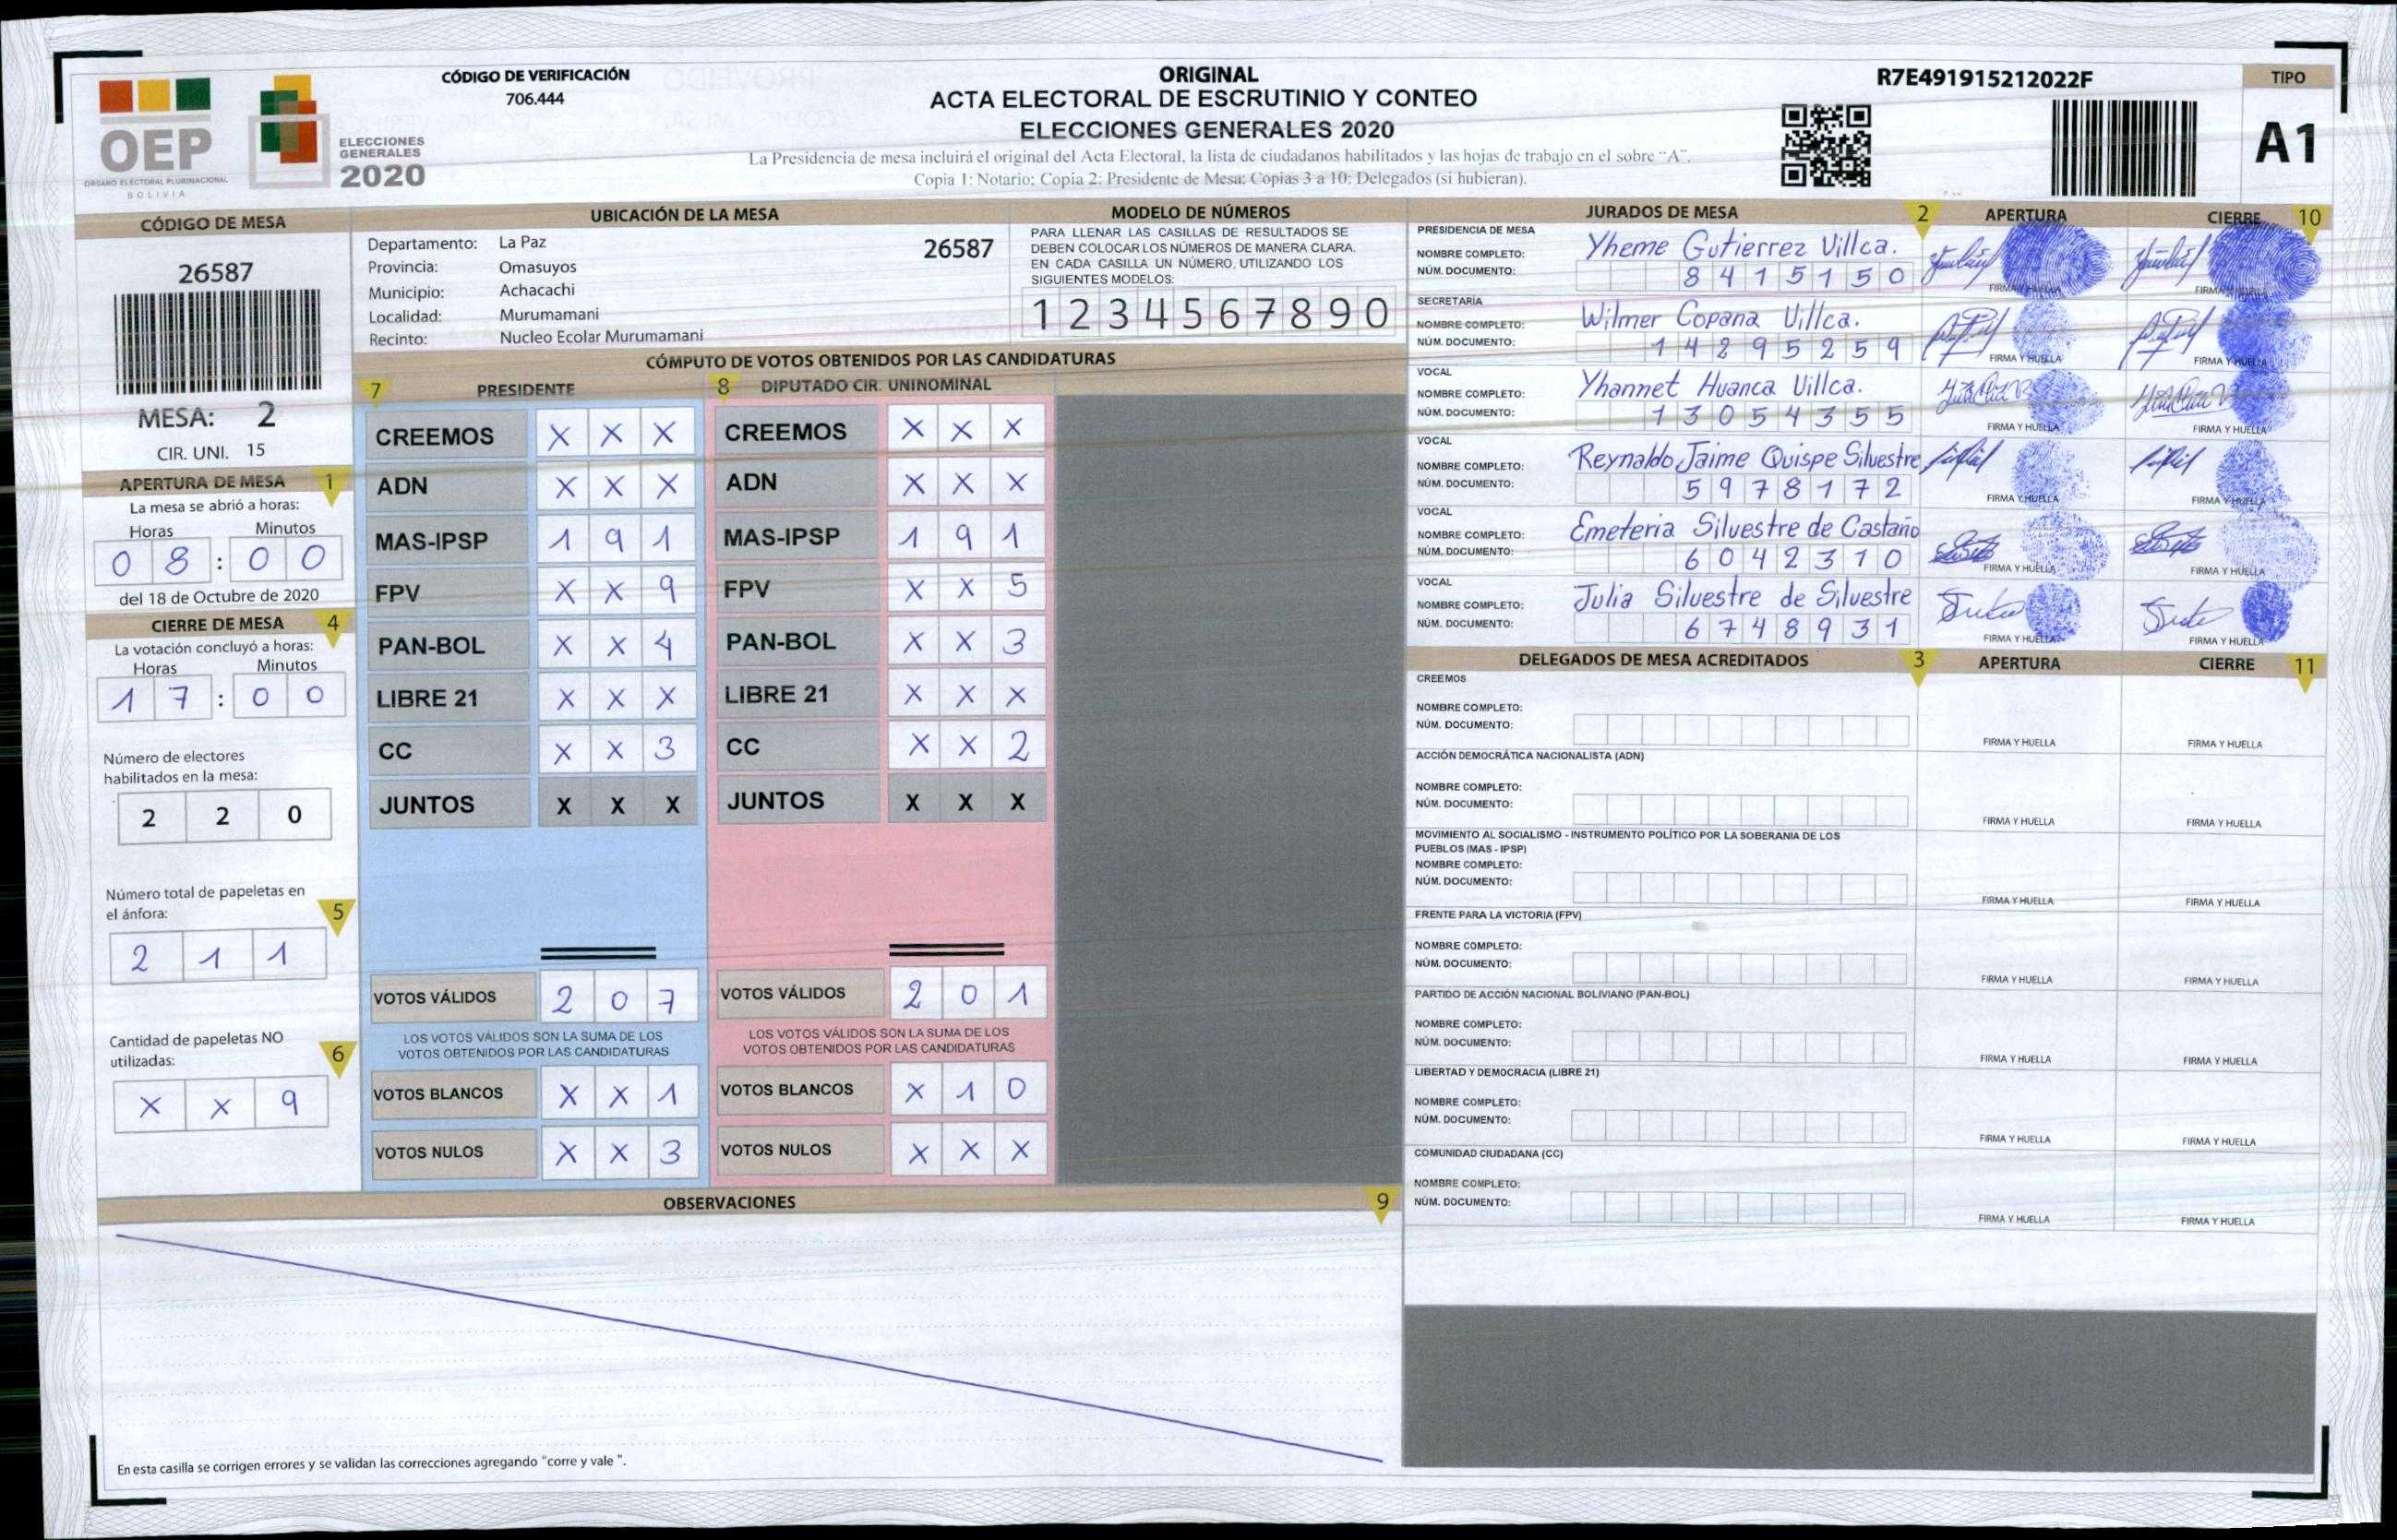 OEP
ÓRGANO ELECTORAL PLURINACIONAL
BOLIVIA
ELECCIONES
GENERALES
2020
CÓDIGO DE VERIFICACIÓN
706.444
ORIGINAL
ACTA ELECTORAL DE ESCRUTINIO Y CONTEO
ELECCIONES GENERALES 2020
La Presidencia de mesa incluirá el original del Acta Electoral, la lista de ciudadanos habilitados y las hojas de trabajo en el sobre "A".
Copia 1: Notario; Copia 2: Presidente de Mesa; Copias 3 a 10: Delegados (si hubieran).
R7E491915212022F
TIPO
A1
CÓDIGO DE MESA
26587
MESA: 2
CIR. UNI. 15
APERTURA DE MESA 1
La mesa se abrió a horas:
Horas Minutos
0 8 : 0 0
del 18 de Octubre de 2020
CIERRE DE MESA 4
La votación concluyó a horas:
Horas Minutos
1 7 : 0 0
Número de electores
habilitados en la mesa:
2 2 0
Número total de papeletas en
el ánfora: 5
2 1 1
Cantidad de papeletas NO
utilizadas: 6
X X 9
UBICACIÓN DE LA MESA
Departamento: La Paz 26587
Provincia: Omasuyos
Municipio: Achacachi
Localidad: Murumamani
Recinto: Nucleo Ecolar Murumamani
MODELO DE NÚMEROS
PARA LLENAR LAS CASILLAS DE RESULTADOS SE
DEBEN COLOCAR LOS NÚMEROS DE MANERA CLARA.
EN CADA CASILLA UN NÚMERO, UTILIZANDO LOS
SIGUIENTES MODELOS:
1 2 3 4 5 6 7 8 9 0
CÓMPUTO DE VOTOS OBTENIDOS POR LAS CANDIDATURAS
7 PRESIDENTE
CREEMOS X X X
ADN X X X
MAS-IPSP 1 9 1
FPV X X 9
PAN-BOL X X 4
LIBRE 21 X X X
CC X X 3
JUNTOS X X X
VOTOS VÁLIDOS 2 0 7
LOS VOTOS VÁLIDOS SON LA SUMA DE LOS
VOTOS OBTENIDOS POR LAS CANDIDATURAS
VOTOS BLANCOS X X 1
VOTOS NULOS X X 3
8 DIPUTADO CIR. UNINOMINAL
CREEMOS X X X
ADN X X X
MAS-IPSP 1 9 1
FPV X X 5
PAN-BOL X X 3
LIBRE 21 X X X
CC X X 2
JUNTOS X X X
VOTOS VÁLIDOS 2 0 1
LOS VOTOS VÁLIDOS SON LA SUMA DE LOS
VOTOS OBTENIDOS POR LAS CANDIDATURAS
VOTOS BLANCOS X 1 0
VOTOS NULOS X X X
OBSERVACIONES 9
En esta casilla se corrigen errores y se validan las correcciones agregando "corre y vale ".
JURADOS DE MESA 2 APERTURA CIERRE 10
PRESIDENCIA DE MESA
NOMBRE COMPLETO: Yheme Gutierrez Villca.
NÚM. DOCUMENTO: 8 4 1 5 1 5 0
FIRMA Y HUELLA FIRMA Y HUELLA
SECRETARÍA
NOMBRE COMPLETO: Wilmer Copana Villca.
NÚM. DOCUMENTO: 1 4 2 9 5 2 5 9
FIRMA Y HUELLA FIRMA Y HUELLA
VOCAL
NOMBRE COMPLETO: Yhannet Huanca Villca.
NÚM. DOCUMENTO: 1 3 0 5 4 3 5 5
FIRMA Y HUELLA FIRMA Y HUELLA
VOCAL
NOMBRE COMPLETO: Reynaldo Jaime Quispe Silvestre
NÚM. DOCUMENTO: 5 9 7 8 1 7 2
FIRMA Y HUELLA FIRMA Y HUELLA
VOCAL
NOMBRE COMPLETO: Emeteria Silvestre de Castaño
NÚM. DOCUMENTO: 6 0 4 2 3 1 0
FIRMA Y HUELLA FIRMA Y HUELLA
VOCAL
NOMBRE COMPLETO: Julia Silvestre de Silvestre
NÚM. DOCUMENTO: 6 7 4 8 9 3 1
FIRMA Y HUELLA FIRMA Y HUELLA
DELEGADOS DE MESA ACREDITADOS 3 APERTURA CIERRE 11
CREEMOS
NOMBRE COMPLETO:
NÚM. DOCUMENTO:
FIRMA Y HUELLA FIRMA Y HUELLA
ACCIÓN DEMOCRÁTICA NACIONALISTA (ADN)
NOMBRE COMPLETO:
NÚM. DOCUMENTO:
FIRMA Y HUELLA FIRMA Y HUELLA
MOVIMIENTO AL SOCIALISMO - INSTRUMENTO POLÍTICO POR LA SOBERANIA DE LOS
PUEBLOS (MAS - IPSP)
NOMBRE COMPLETO:
NÚM. DOCUMENTO:
FIRMA Y HUELLA FIRMA Y HUELLA
FRENTE PARA LA VICTORIA (FPV)
NOMBRE COMPLETO:
NÚM. DOCUMENTO:
FIRMA Y HUELLA FIRMA Y HUELLA
PARTIDO DE ACCIÓN NACIONAL BOLIVIANO (PAN-BOL)
NOMBRE COMPLETO:
NÚM. DOCUMENTO:
FIRMA Y HUELLA FIRMA Y HUELLA
LIBERTAD Y DEMOCRACIA (LIBRE 21)
NOMBRE COMPLETO:
NÚM. DOCUMENTO:
FIRMA Y HUELLA FIRMA Y HUELLA
COMUNIDAD CIUDADANA (CC)
NOMBRE COMPLETO:
NÚM. DOCUMENTO:
FIRMA Y HUELLA FIRMA Y HUELLA